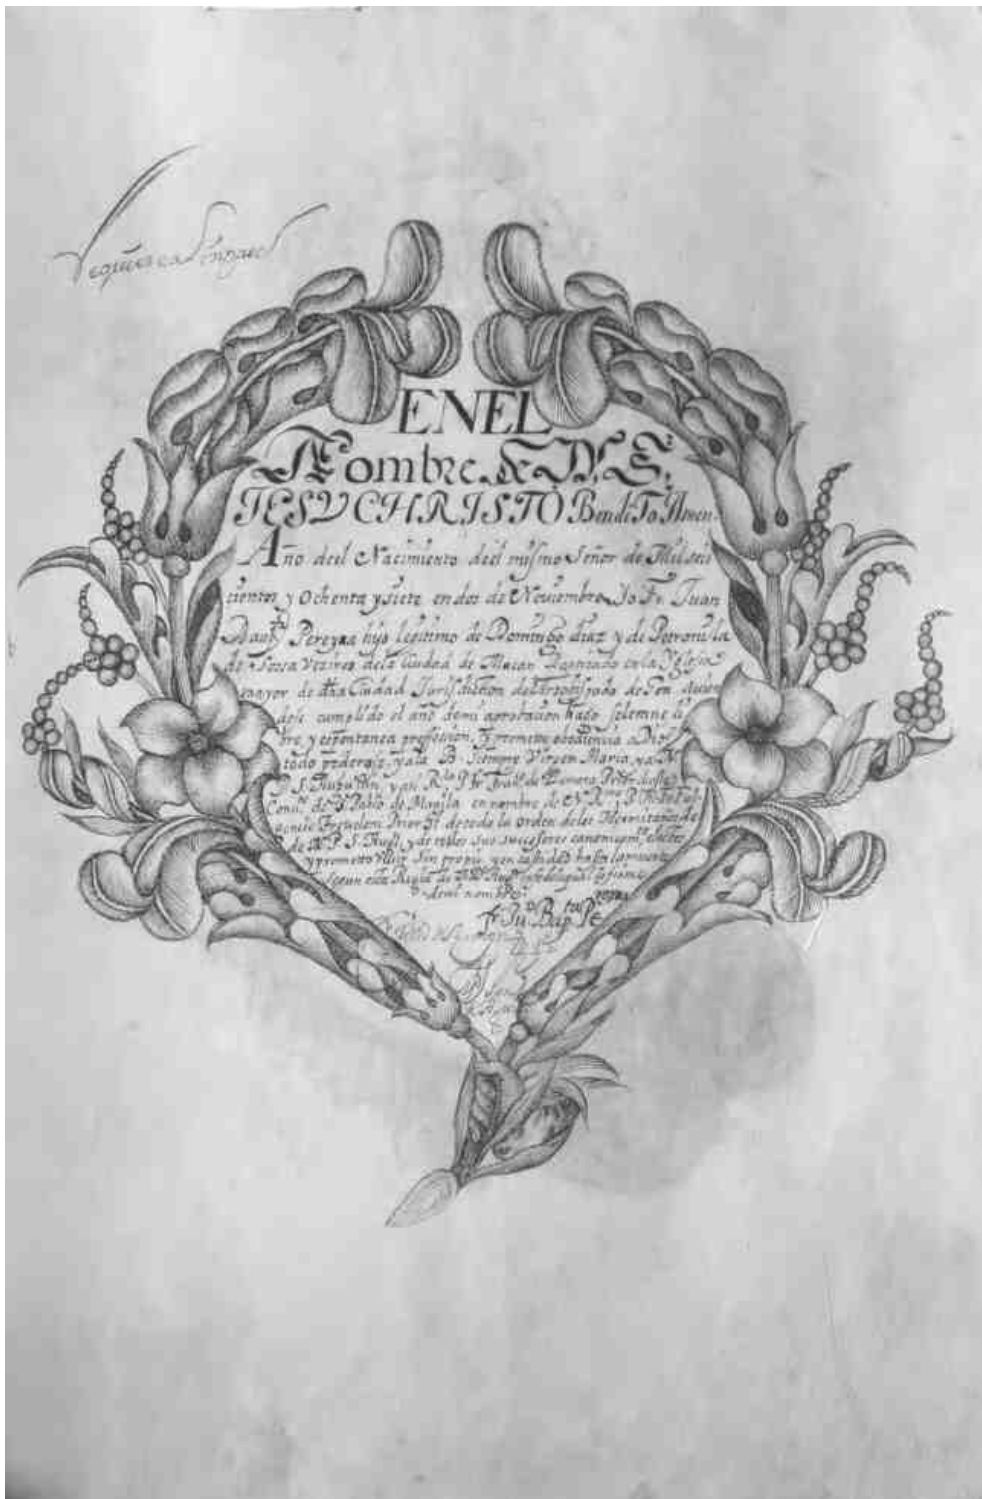 Requiescat in pace
EN EL
Nombre de N. S.
JESVCHRISTO BendiTo Amen.
Año deel Nacimiento deel mismo Señor de Mil seis
cientos y Ochenta y siete en dos de Noviembre Yo Fr. Juan
Baupta Pereyra hijo legitimo de Domingo diaz y de Petronila
de Sossa Vezinos dela Ciudad de Macan Bautizado en la Yglesia
mayor de dha Ciudad Jurisdiction del arzobispado de Goa, avien
dose cumplido el año de mi aprobacion hago solemne li
bre, y espontanea profession, y prometo obediencia a Dios
todo poderoso, y a la B. Siempre Virgen Maria, y a N.
P. S. Augustin, y a N. R. P. Fr. de Prior deste
Convto de S. Pablo de Manila en nombre de N. Rmo P. Fr.
Prior Gl de toda la orden delos Hermitaños de
de N. P. S. Augn y de todos sus successores canonicamte electos
y prometo vivir sin propio y en castidad hasta la muerte
segun esta Regla de N. P. Augn firme
de mi nombre
Fr. Ju. Bapta Pereyra